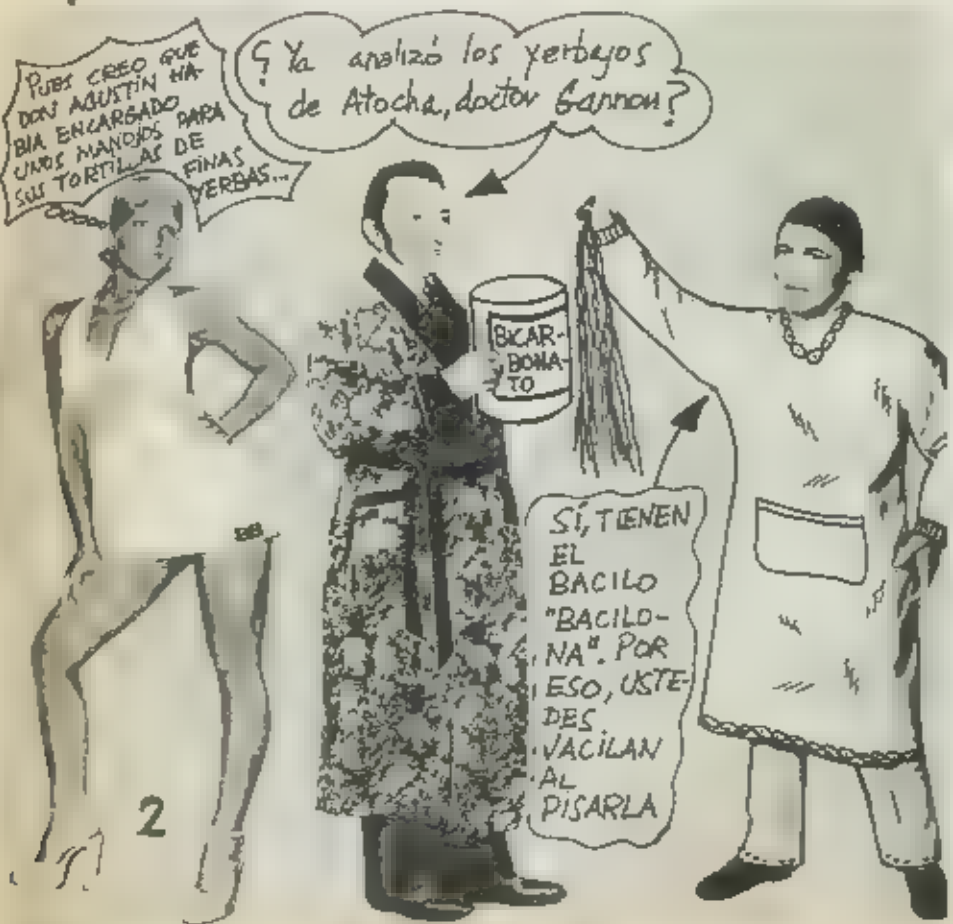 PUES CREO QUE
DON AGUSTÍN HA-
BIA ENCARGADO
UNOS MANOJOS PARA
SUS TORTILLAS DE
FINAS
YERBAS...
¿Ya analizó los yerbajos
de Atocha, doctor Gannon?
BICAR-
BONA-
TO
SÍ, TIENEN
EL
BACILO
"BACILO-
NA". POR
ESO, USTE-
DES
VACILAN
AL
PISARLA
2